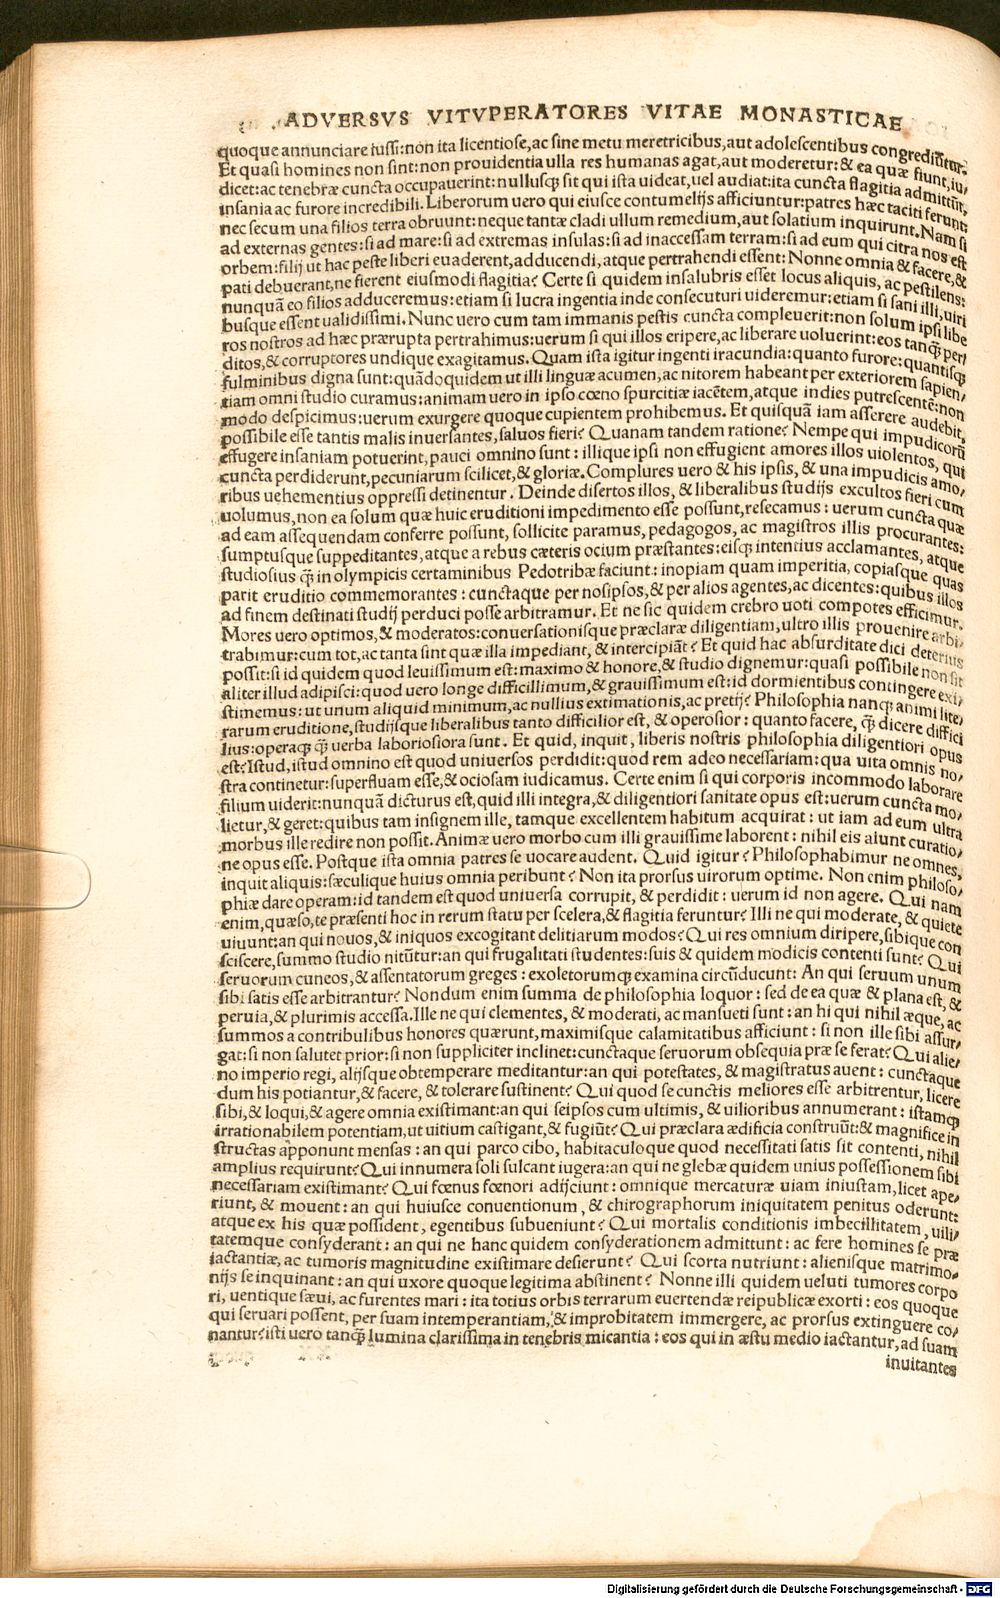 ADVERSVS VITVPERATORES VITAE MONASTICAE
quoque annunciare iussi:non ita licentiose,ac sine metu meretricibus,aut adolescentibus congrediūtur.
Et quasi homines non sint:non prouidentia ulla res humanas agat,aut moderetur:& ea quæ fiunt,iu/
dicet:ac tenebræ cuncta occupauerint:nullusq̃ sit qui ista uideat,uel audiat:ita cuncta flagitia admittūt,
insania ac furore incredibili. Liberorum uero qui eiusce contumelijs afficiuntur:patres hæc taciti ferunt:
nec secum una filios terra obruunt:neque tantæ cladi ullum remedium,aut solatium inquirunt. Nam si
ad externas gentes:si ad mare:si ad extremas insulas:si ad inaccessam terram:si ad eum qui citra nos est
orbem:filij ut hac peste liberi euaderent,adducendi,atque pertrahendi essent: Nonne omnia & facere,&
pati debuerant,ne fierent eiusmodi flagitia? Certe si quidem insalubris esset locus aliquis, ac pestilens:
nunquā eo filios adduceremus:etiam si lucra ingentia inde consecuturi uideremur:etiam si sani illi,uiri
busque essent ualidissimi. Nunc uero cum tam immanis pestis cuncta compleuerit:non solum ipsi libe
ros nostros ad hæc prærupta pertrahimus:uerum si qui illos eripere,ac liberare uoluerint:eos tanq̃ per/
ditos,& corruptores undique exagitamus. Quam ista igitur ingenti iracundia:quanto furore:quantisq̃
fulminibus digna sunt:quādoquidem ut illi linguæ acumen,ac nitorem habeant per exteriorem sapien/
tiam omni studio curamus:animam uero in ipso cœno spurcitiæ iacētem,atque indies putrescentē:non
modo despicimus:uerum exurgere quoque cupientem prohibemus. Et quisquā iam asserere audebit,
possibile esse tantis malis inuersantes,saluos fieri? Quanam tandem ratione? Nempe qui impudicorū
effugere insaniam potuerint,pauci omnino sunt : illique ipsi non effugient amores illos uiolentos, qui
cuncta perdiderunt,pecuniarum scilicet,& gloriæ. Complures uero & his ipsis, & una impudicis amo/
ribus uehementius oppressi detinentur. Deinde disertos illos, & liberalibus studijs excultos fieri cum
uolumus,non ea solum quæ huic eruditioni impedimento esse possunt,resecamus : uerum cuncta quæ
ad eam assequendam conferre possunt, sollicite paramus, pedagogos, ac magistros illis procurantes:
sumptusque suppeditantes,atque a rebus cæteris ocium præstantes:eisq̃ intentius acclamantes, atque
studiosius q̃ in olympicis certaminibus Pedotribæ faciunt: inopiam quam imperitia, copiasque quas
parit eruditio commemorantes : cunctaque per nosipsos,& per alios agentes,ac dicentes:quibus illos
ad finem destinati studij perduci posse arbitramur. Et ne sic quidem crebro uoti compotes efficimur.
Mores uero optimos,& moderatos:conuersationisque præclaræ diligentiam,ultro illis prouenire arbi/
trabimur:cum tot,ac tanta sint quæ illa impediant, & intercipiāt? Et quid hac absurditate dici deterius
possit:si id quidem quod leuissimum est:maximo & honore,& studio dignemur:quasi possibile non sit
aliter illud adipisci:quod uero longe difficillimum,& grauissimum est:id dormientibus contingere exi/
stimemus:ut unum aliquid minimum,ac nullius extimationis,ac pretij? Philosophia nanq̃ animi lite/
rarum eruditione,studijsque liberalibus tanto difficilior est, & operosior : quanto facere, q̃ dicere diffici
lius:operaq̃ q̃ uerba laboriosiora sunt. Et quid, inquit, liberis nostris philosophia diligentiori opus
est?Istud,istud omnino est quod uniuersos perdidit:quod rem adeo necessariam:qua uita omnis no/
stra continetur:superfluam esse,& ociosam iudicamus. Certe enim si qui corporis incommodo laborare
filium uiderit:nunquā dicturus est,quid illi integra,& diligentiori sanitate opus est:uerum cuncta mo/
lietur,& geret:quibus tam insignem ille, tamque excellentem habitum acquirat : ut iam ad eum ultra
morbus ille redire non possit. Animæ uero morbo cum illi grauissime laborent : nihil eis aiunt curatio/
ne opus esse. Postque ista omnia patres se uocare audent. Quid igitur? Philosophabimur ne omnes,
inquit aliquis:sæculique huius omnia peribunt? Non ita prorsus uirorum optime. Non enim philoso/
phiæ dare operam:id tandem est quod uniuersa corrupit, & perdidit : uerum id non agere. Qui nam
enim,quæso,te præsenti hoc in rerum statu per scelera,& flagitia feruntur? Illi ne qui moderate, & quiete
uiuunt:an qui nouos,& iniquos excogitant delitiarum modos? Qui res omnium diripere,sibique con
sciscere,summo studio nitūtur:an qui frugalitati studentes:suis & quidem modicis contenti sunt? Qui
seruorum cuneos,& assentatorum greges : exoletorumq̃ examina circūducunt: An qui seruum unum
sibi satis esse arbitrantur? Nondum enim summa de philosophia loquor : sed de ea quæ & plana est, &
peruia,& plurimis accessa. Ille ne qui clementes, & moderati, ac mansueti sunt : an hi qui nihil æque, ac
summos a contribulibus honores quærunt,maximisque calamitatibus afficiunt : si non ille sibi assur/
gat:si non salutet prior:si non suppliciter inclinet:cunctaque seruorum obsequia præ se ferat? Qui alie/
no imperio regi, alijsque obtemperare meditantur:an qui potestates, & magistratus auent : cunctaque
dum his potiantur,& facere, & tolerare sustinent? Qui quod se cunctis meliores esse arbitrentur, licere
sibi,& loqui,& agere omnia existimant:an qui seipsos cum ultimis, & uilioribus annumerant : istamq̃
irrationabilem potentiam,ut uitium castigant,& fugiūt? Qui præclara ædificia construūt:& magnifice in
structas apponunt mensas : an qui parco cibo, habitaculoque quod necessitati satis sit contenti, nihil
amplius requirunt? Qui innumera soli sulcant iugera:an qui ne glebæ quidem unius possessionem sibi
necessariam existimant? Qui fœnus fœnori adijciunt : omnique mercaturæ uiam iniustam,licet ape/
riunt, & mouent : an qui huiusce conuentionum, & chirographorum iniquitatem penitus oderunt:
atque ex his quæ possident, egentibus subueniunt? Qui mortalis conditionis imbecillitatem, uili/
tatemque consyderant : an qui ne hanc quidem consyderationem admittunt : ac fere homines se præ
iactantiæ, ac tumoris magnitudine existimare desierunt? Qui scorta nutriunt : alienisque matrimo/
nijs se inquinant : an qui uxore quoque legitima abstinent? Nonne illi quidem ueluti tumores corpo
ri, uentique sæui, ac furentes mari : ita totius orbis terrarum euertendæ reipublicæ exorti : eos quoque
qui seruari possent, per suam intemperantiam, & improbitatem immergere, ac prorsus extinguere co/
nantur?isti uero tanq̃ lumina clarissima in tenebris micantia : eos qui in æstu medio iactantur, ad suam
inuitantes
Digitalisierung gefördert durch die Deutsche Forschungsgemeinschaft - DFG